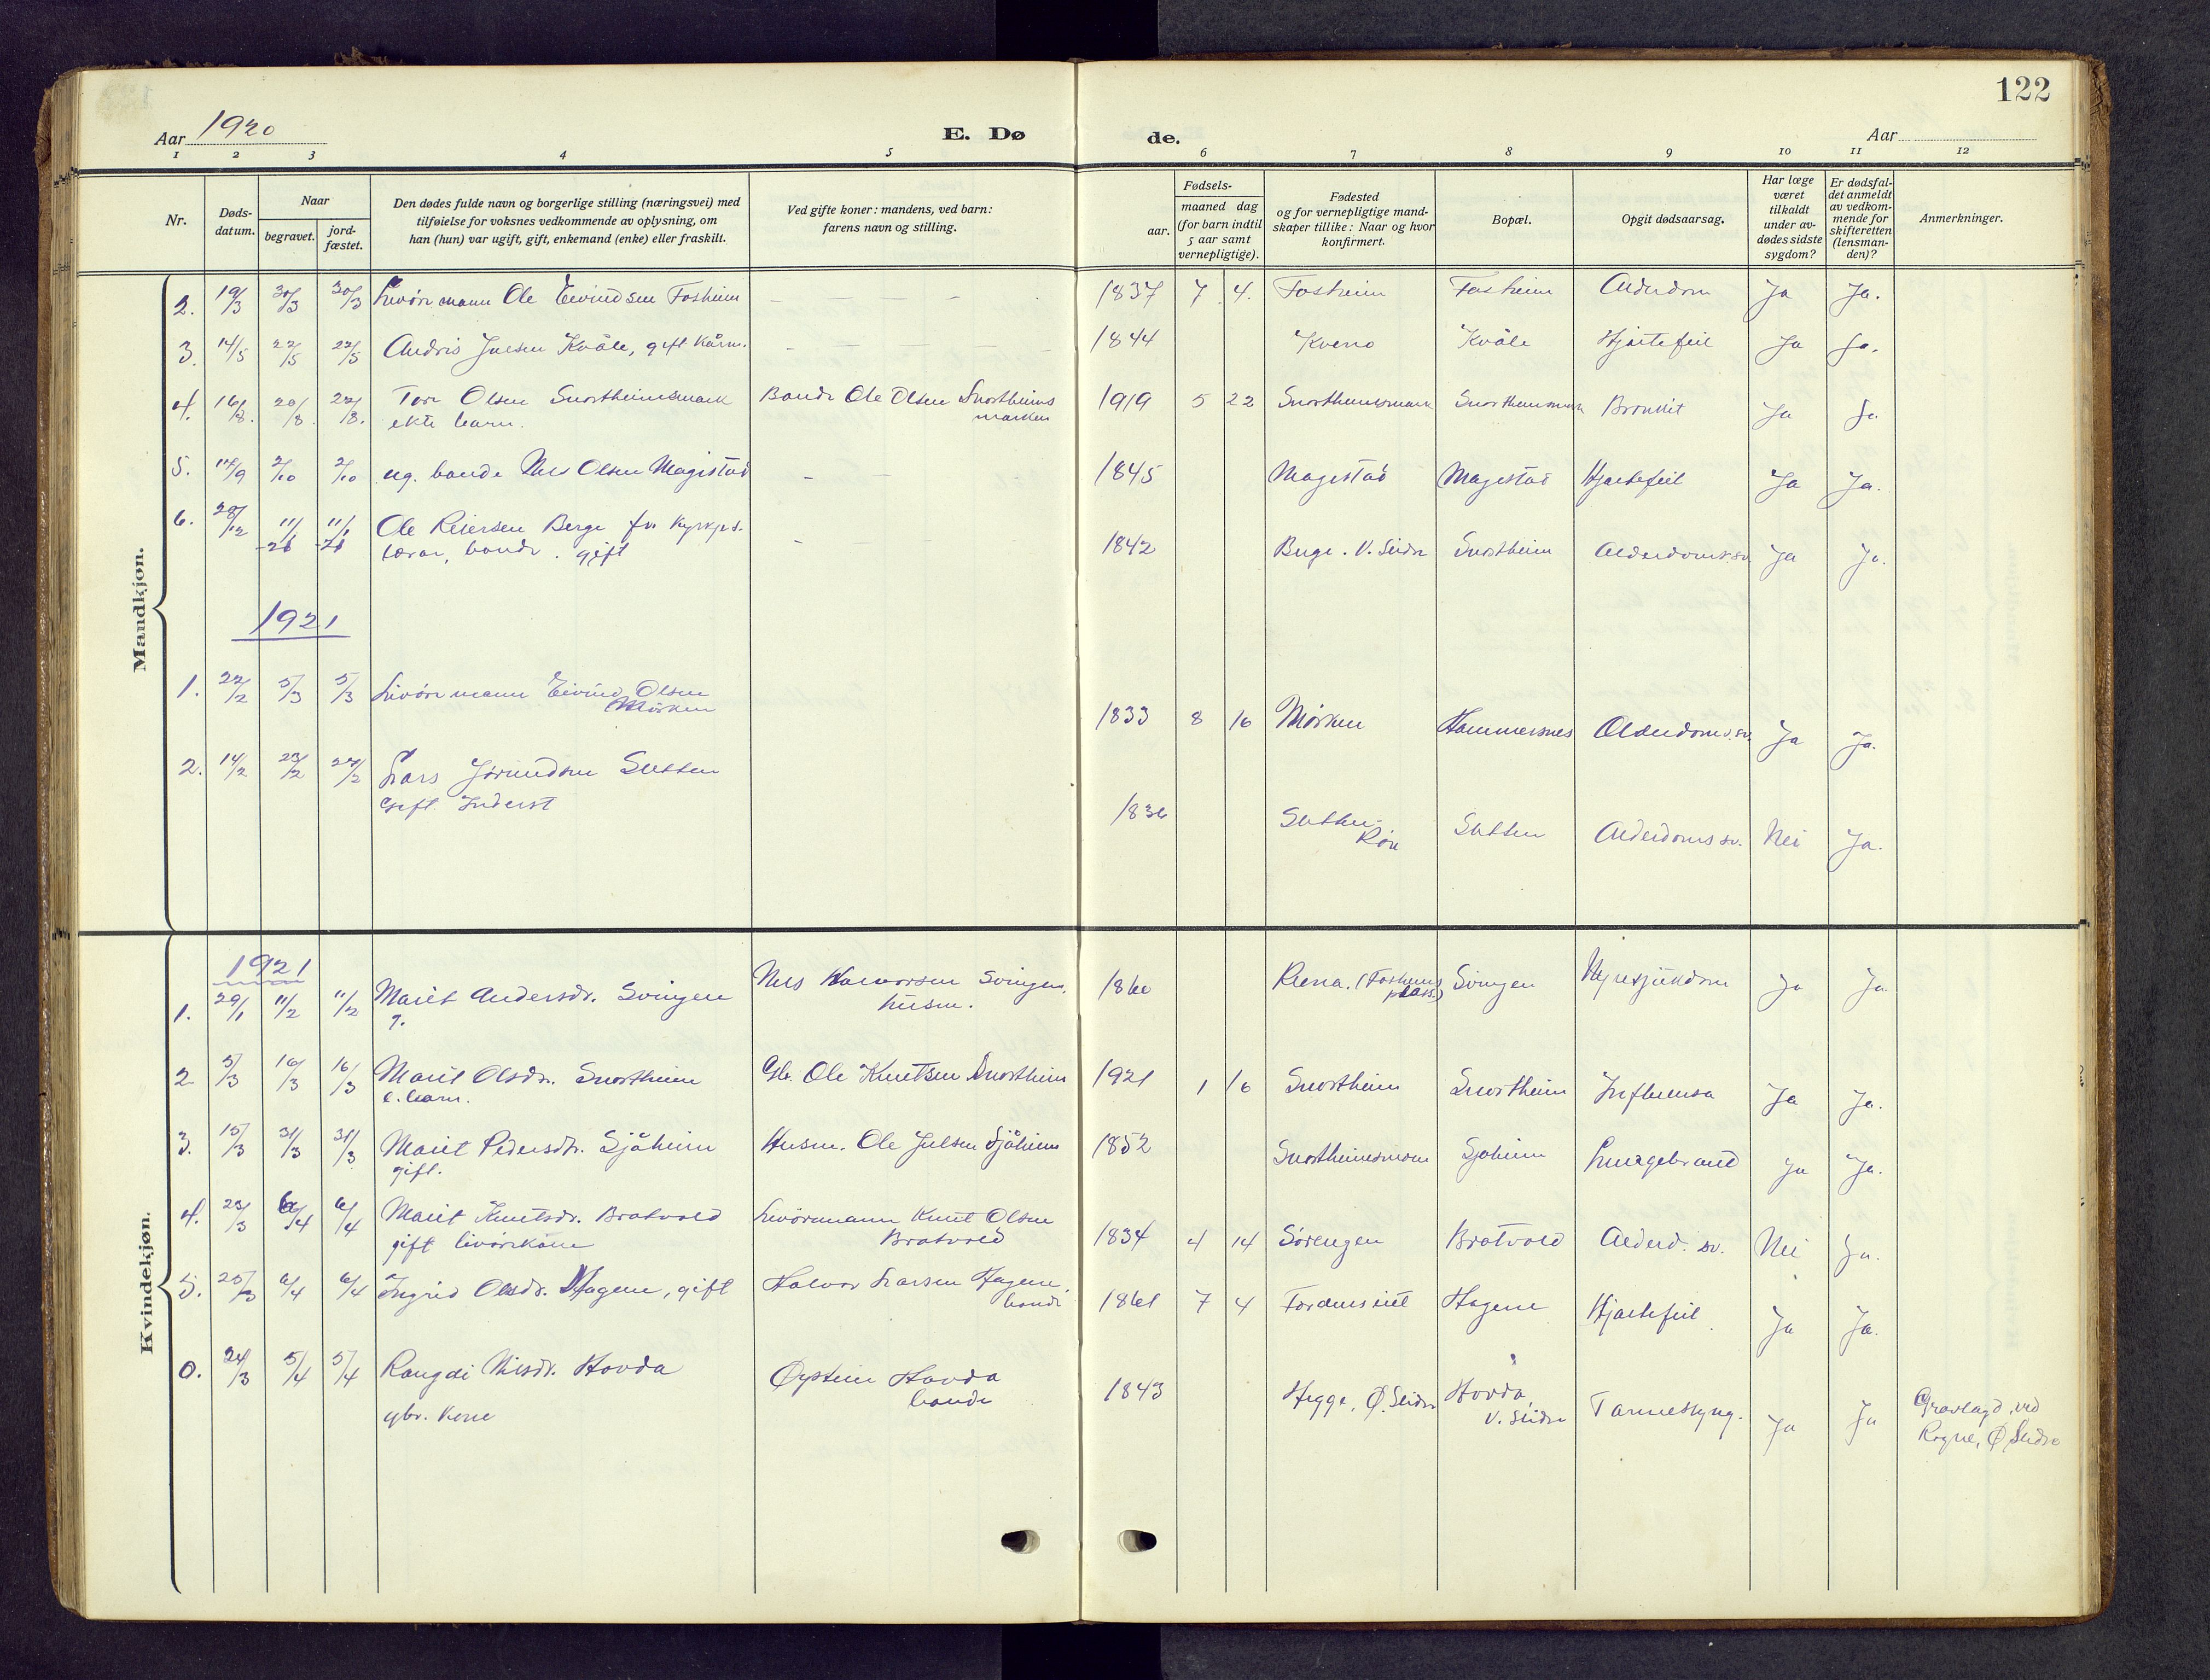 122
Aar 1920
E. Dø
de.
Aar
1 2 3 4 5 6 7 8 9 10 11 12
Nr.
Døds-
datum.
Naar
begravet.
jord-
fæstet.
Den dødes fulde navn og borgerlige stilling (næringsvei) med
tilføielse for voksnes vedkommende av oplysning, om
han (hun) var ugift, gift, enkemand (enke) eller fraskilt.
Ved gifte koner: mandens, ved barn:
farens navn og stilling.
Fødsels-
aar.
maaned dag
(for barn indtil
5 aar samt
vernepligtige).
Fødested
og for vernepligtige mand-
skaper tillike: Naar og hvor
konfirmert.
Bopæl.
Opgit dødsaarsag.
Har læge
været
tilkaldt
under av-
dødes sidste
sygdom?
Er dødsfal-
det anmeldt
av vedkom-
mende for
skifteretten
(lensman-
den)?
Anmerkninger.
Mandkjøn.
2. 19/3 30/3 30/3 Livöremann Ole Eivindsen Fosheim — — — 1837 7 4. Fosheim Fosheim Alderdom Ja Ja.
3. 14/5 22/5 22/5 Andris Julsen Kvåle, gift Kårm. — — — 1844 Kverno Kvåle Hjartefeil Ja Ja.
4. 16/8. 20/8. 22/8. Tore Olsen Snortheimsmark Bonde Ole Olsen Snortheims 1919 5 22 Snortheimsmark Snortheimsmark Bronkit Ja Ja
ekte barn. marken
5. 17/9 2/10 2/10 ug. bonde Nils Olsen Magistad — — 1845 Magistad Magestad Hjartefeil Ja Ja.
6. 28/12 11/1 11/1 Ole Reiersen Berge fv. kyrkjes.
-21 -21 lærar, bonde. gift — 1842 Berge. V. Slidre Snortheim Alderdoms.sv. Ja Ja.
1921
1. 22/2 5/3 5/3 Livöremann Eivind Olsen
Mörken 1833 8 16 Mörken Hammersnes Alderdoms.sv. Ja Ja.
2. 14/2 23/2 27/2 Lars Jörundsen Sletten
Gift. Inderst 1836 Sletten Sletten Alderdoms sv. Nei Ja.
Kvindekjøn.
1921
1. 29/1 11/2 11/2 Marit Andersdr. Svingen Nils Halvorsen Svingen, 1860 (Foshems Svingen Nyresjukdom Ja Ja
g. husm. plass)
2 5/3 16/3 16/3 Marit Olsdr. Snortheim Gb. Ole Knutsen Snortheim 1921 1 16 Snortheim Snortheim Influensa Ja Ja.
e. barn.
3. 15/3 31/3 31/3 Marit Pedersdtr. Sjåheim Husm. Ole Julsen Sjåheim 1852 Sjoheim Lungebrand Ja Ja.
gift.
4. 23/3 6/4 6/4 Marit Knutsdr. Bratvold Livörmann Knut Olsen 1834 4 14 Sörengen Bratvold Alderd. sv. Nei Ja.
gift livörekone Bratvold
5. 25/3 6/4 6/4 Ingrid Olsdr. Hagene, gift Halvor Larsen Hagene, 1861 7 4 Hagene Hjartefeil Ja Ja.
bonde
0. 24/3 5/4 5/4 Rangdi Nilsdr. Hovda Øystein Hovda 1843 Hegge, Ø. Slidre Hovda, Ja Ja Gravlagd ved
gbr. kone bonde V. Slidre Rogne, Ø. Slidre